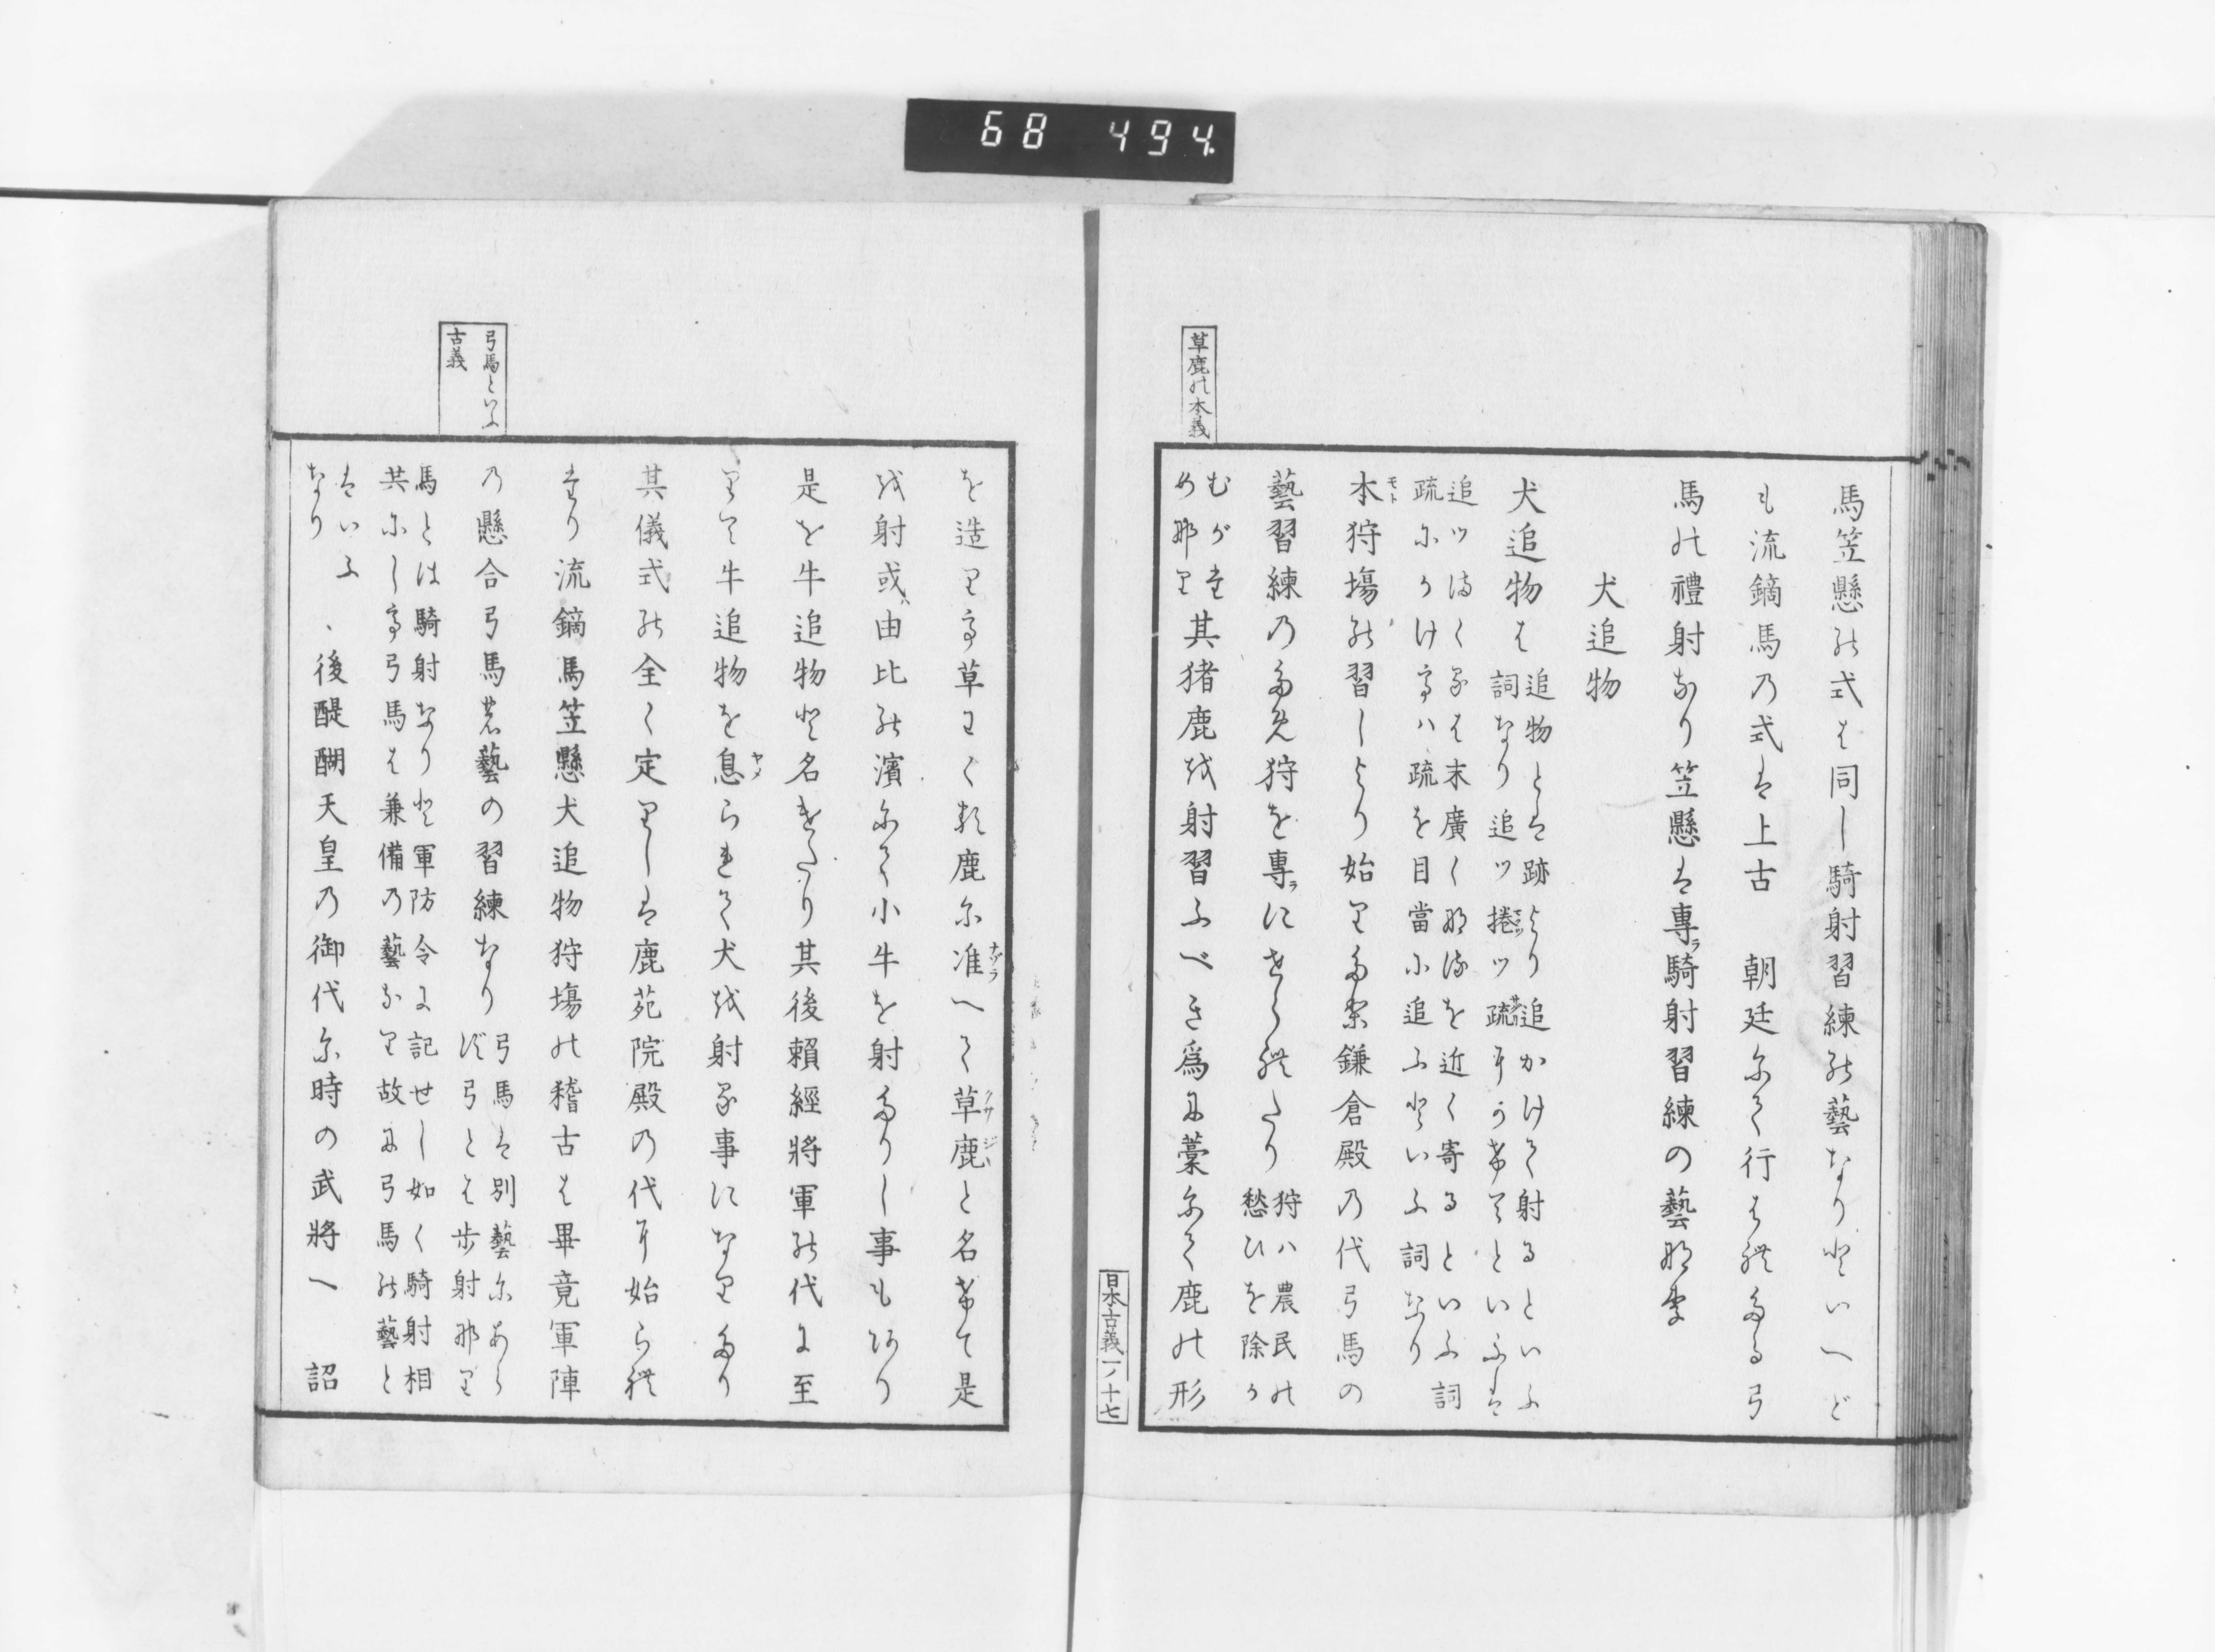 68 494.
草鹿の本義
馬笠懸の式は同し騎射習練の藝なりといへど
も流鏑馬の式は上古 朝廷にて行はれたる弓
馬の禮射なり笠懸は專ラ騎射習練の藝なり
犬追物
犬追物は
追物とは跡より追かけて射るといふ
詞なり追ツ捲ツ疏にかけてといふは
追ツまくるは末廣くなるを近く寄るといふ詞
疏にかけてハ疏を目當に追ふといふ詞なり
本狩場の習しより始りたり鎌倉殿の代弓馬の
藝習練のため狩を專ラにせられたり
狩ハ農民の
愁ひを除か
むがた
めなり
其猪鹿を射習ふべき爲に藁にて鹿の形
日本古義一ノ十七
を造りて草わく類鹿に准へて草鹿と名けて是
を射或ハ由比の濱にて小牛を射たりし事もあり
是を牛追物と名けたり其後賴經將軍の代に至
りて牛追物を息られて犬を射る事になりたり
其儀式の全く定りしは鹿苑院殿の代に始られ
たり流鏑馬笠懸犬追物狩場の稽古は畢竟軍陣
の懸合弓馬の藝の習練なり
弓馬は別藝にあら
ず弓とは歩射なり
弓馬といふ
古義
馬とは騎射なりと軍防令に記せし如く騎射相
共にして弓馬は兼備の藝なり故に弓馬の藝と
はいふ
なり
、後醍醐天皇の御代に時の武將へ 詔